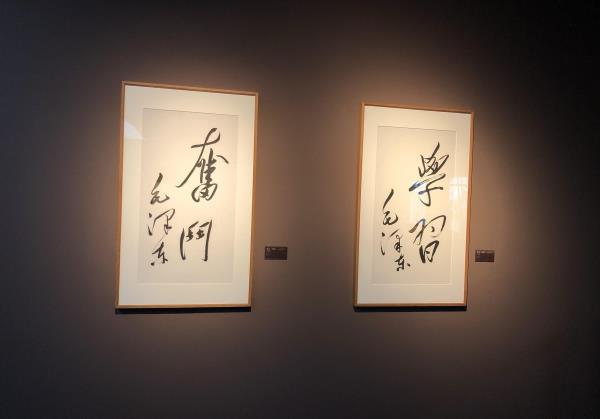 奮鬥
毛澤东
學習
毛澤东